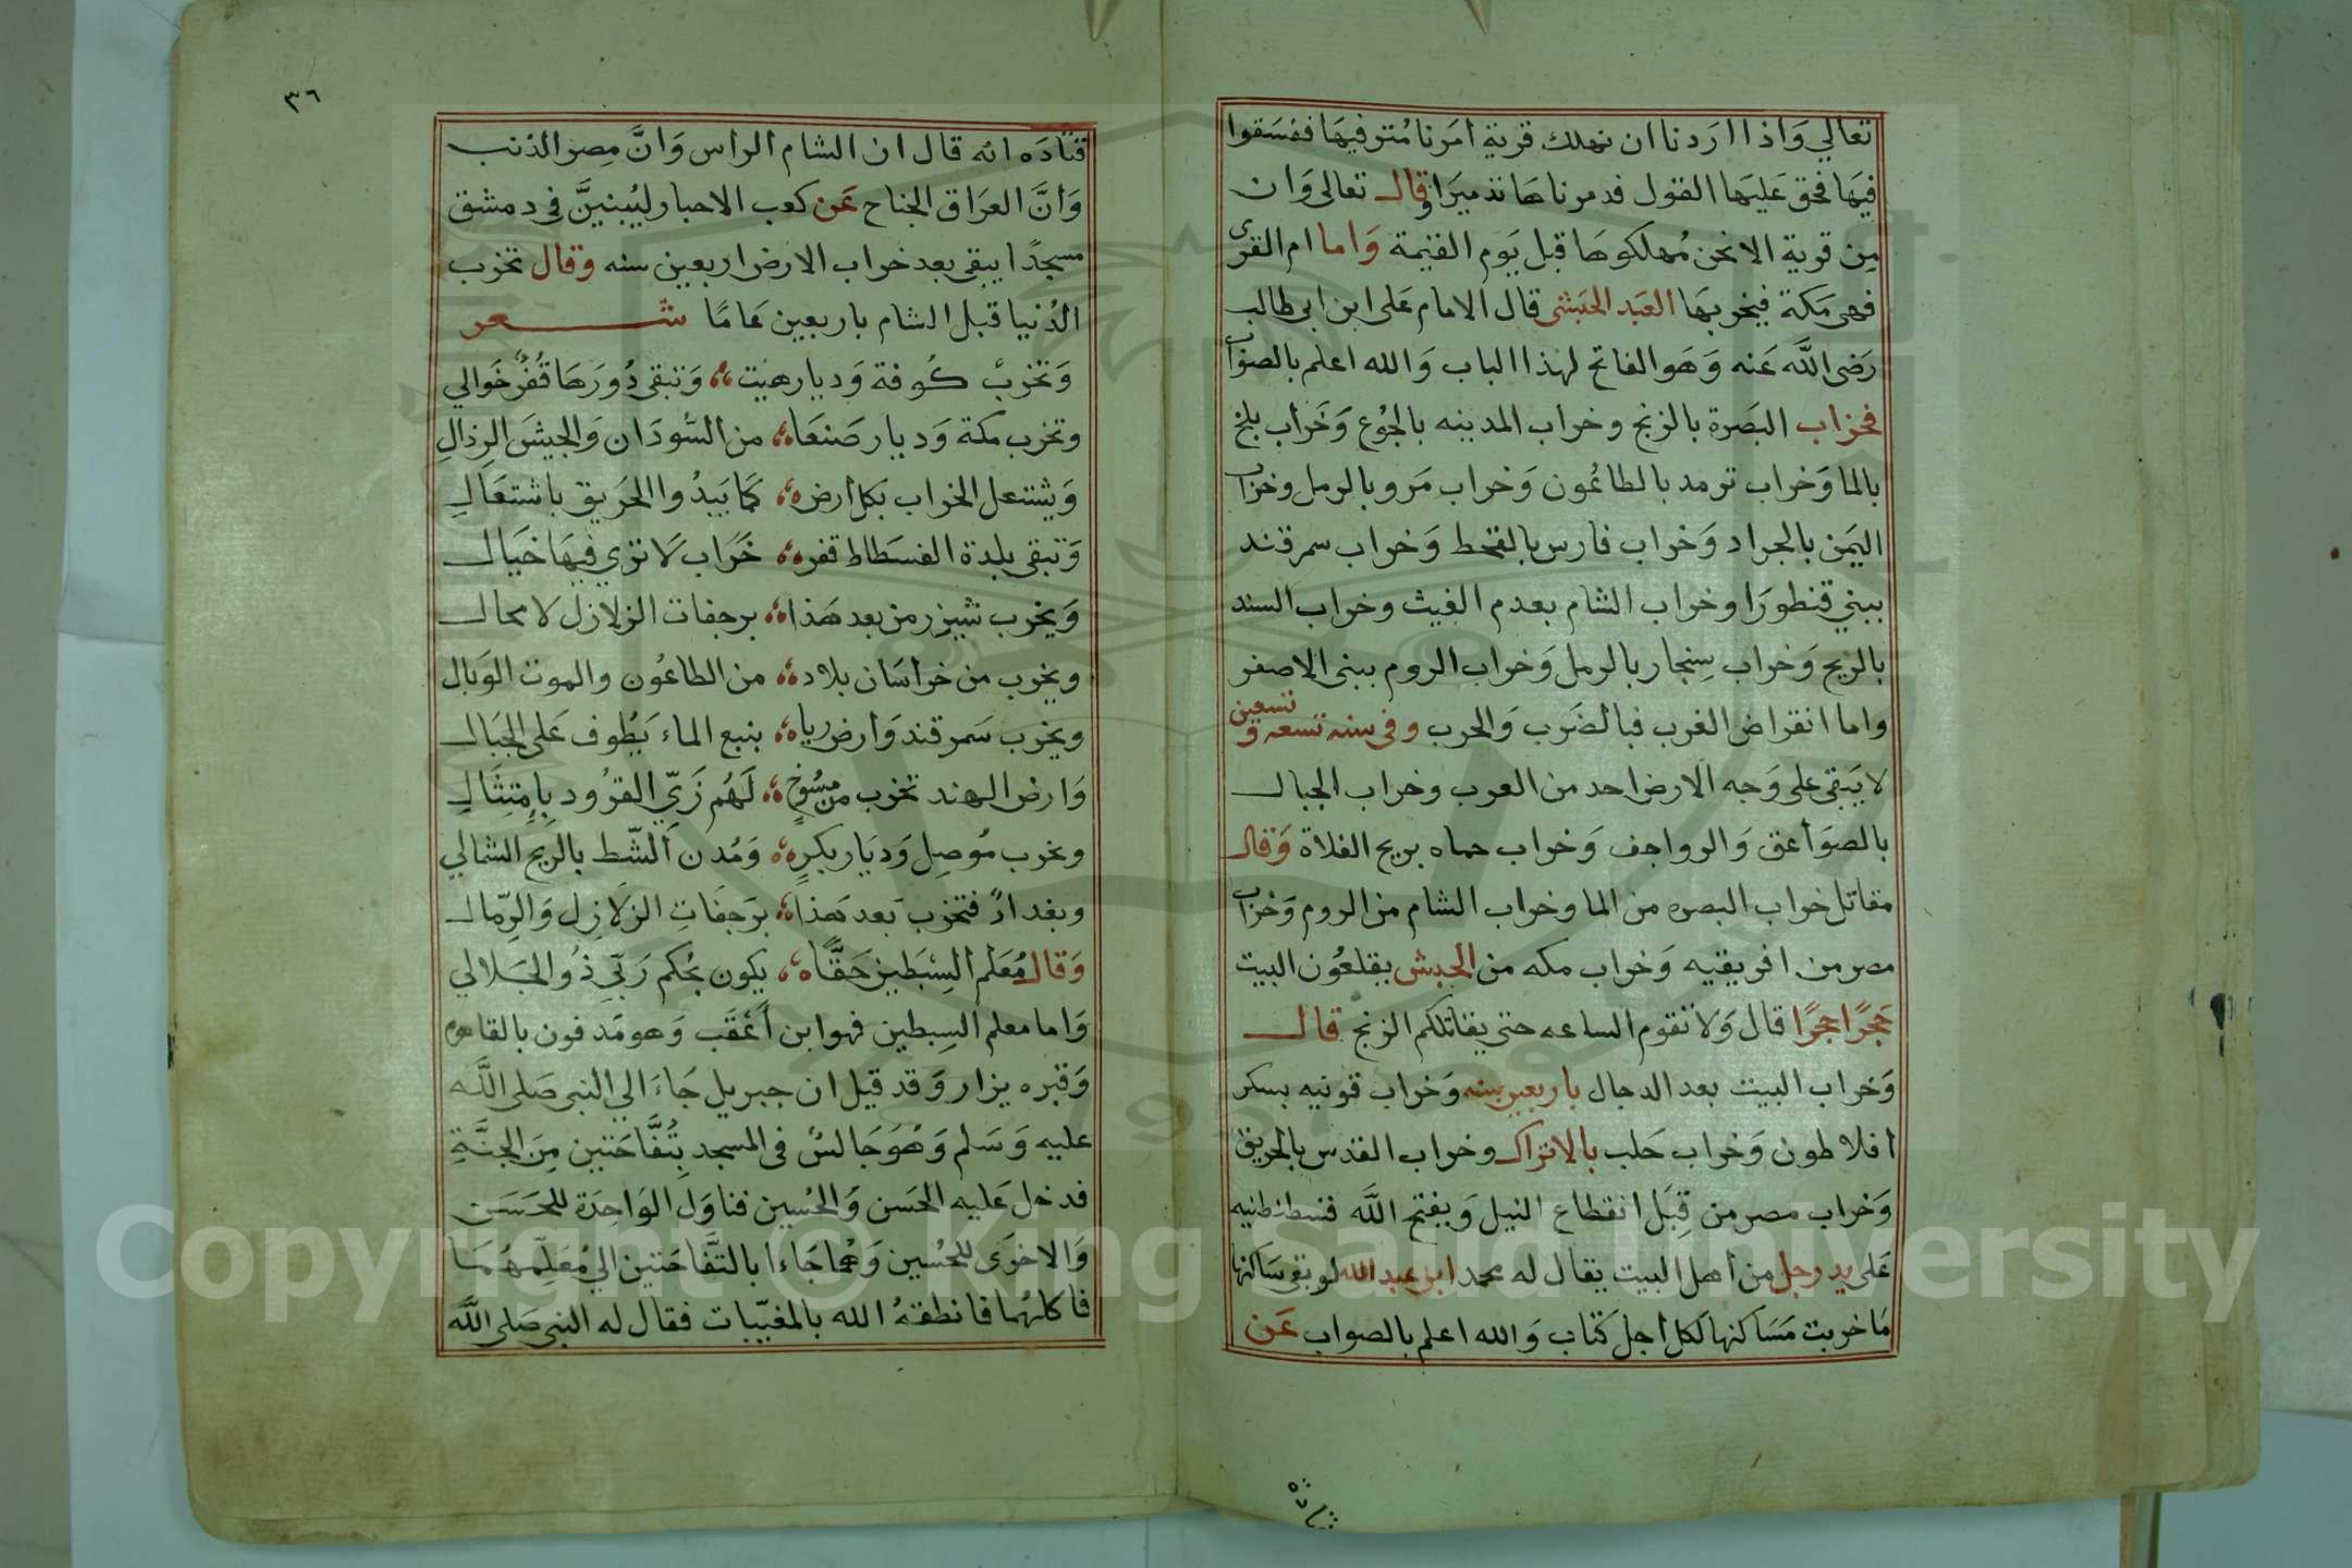 تعالي وَاذا اَرَدنا ان نهلك قرية اَمَرنا مُترفيهَا ففسَقوا
فيهَا فحق عَليهَا القول فدمرناهَا تدميرًا وقال تعالى وَان
مِن قرية الا نحن مُهلكوهَا قبل يَوم القيٰمة وَاما ام القرى
فهى مَكة فيخربهَا العَبد الحبَشى قال الامام عَلى ابن ابى طالب
رَضى اللَّه عَنه وَهَو الفاتح لهذا الباب وَالله اعلم بالصواب
فخراب البَصرة بالزنج وخراب المدينه بالجُوع وَخَراب بلخ
بالما وَخراب ترمد بالطاعُون وَخراب مَرو بالرمل وخراب
اليَمن بالجراد وَخراب فارس بالقحط وَخراب سمرقند
ببني قنطورَا وخراب الشام بعدم الغيث وخراب السند
بالريح وَخراب سِنجار بالرمل وَخراب الروم ببنى الاصفر
واما انقراض العرب فبالضَرب وَالحرب وفى سنه تسعه و تسعين
لا يَبقى على وَجه الارض احد من العرب وخراب الجبال
بالصوَاعق وَالرواجف وَخراب حماه بريح الفلاة وَقال
مقاتل خراب البصره من الما وخراب الشام من الروم وَخراب
مصر من افريقيه وَخراب مكه من الحبش يقلعُون البيت
حَجرًا حجرًا قال وَلا تقوم الساعه حتى يقاتلكم الزنج قال
وَخراب البيت بعد الدجال باربعين سنه وَخراب قونيه بسكر
افلاطون وَخراب حَلب بالاتراك وخراب القدس بالحريق
وَخراب مصر من قِبَل انقطاع النيل وَيفتح اللَّه قسطنطنيه
عَلى يد رجل من اهل البيت يقال له محمد ابن عبد الله لو بقى سَاكنها
مَا خربت مَسَاكنها لكل اجل كتاب وَالله اعلم بالصواب عَن
قتاده
٣٦
قتادَه انه قال ان الشام الراس وَانَّ مِصر الذنب
وَانَّ العرَاق الجناح عَن كعب الاحبار ليُبنيَنَّ فى دمشق
مسجدًا يبقى بعد خراب الارض اربعين سنه وقال تخرب
الدُنيا قبل الشام باربعين عَامًا شعر
وَتخربْ كُوفة وَديارهيت وَتبقى دُورَهَا قُفْرٌ خَوالي
وتخرب مكة وَديار صَنعَا من السُّودَان وَالجيشَ الرِذالِ
وَيشتعل الخراب بكل ارض كمَا يَبدُوا الحَريق باشتعَالِ
وَتبقى بلدة الفسطاط قفر خَرَاب لَا ترَي فيهَا خيَال
وَيخرب شيزر من بعد هَذا برجفات الزلازل لا محال
ويخرب من خراسَان بلاد من الطاعُون والموت الوَبال
ويخرب سَمرقند وَارض رياه بنبع الماء يَطُوف عَلى الجبَال
وَارض الهند تخرب من مسُوخٍ لَهُم زَيّ القرُود بِامتِثَالِ
وتخرب مُوصِل وَديَاربكرٍ وَمُدن اَلشّط بالريح الشمالي
وبغدادٌ فتخرب بَعد هَذا برَجفاتِ الزلَازِل وَالرِّمال
وَقال مُعَلم السِبْطَين حَقًّا يكون بحُكم رَبّي ذُو الجَلالي
وَاما معلم السِبطين فهو ابن اَعْقَب وَهو مَدفون بالقاهره
وَقبره يزار وَقد قيل ان جبريل جَاءَ الي النبى صَلى اللَّه
عليه وَسَلم وَهُوَ جَالسٌ فى المسجد بِتُفَّاحَتين مِنَ الجنَّةِ
فدخل عَليه الحَسَن وَالحُسين فناوَل الوَاحِدَة للحَسَن
وَالاخرَى للحُسين وَهُمَا جَاءَا بالتَّفاحَتين الي مُعَلِّمهُمَا
فاكلهُما فانطقهُ الله بالمغيّبات فقال له النبى صَلى اللَّه
Copyright © King Saud University